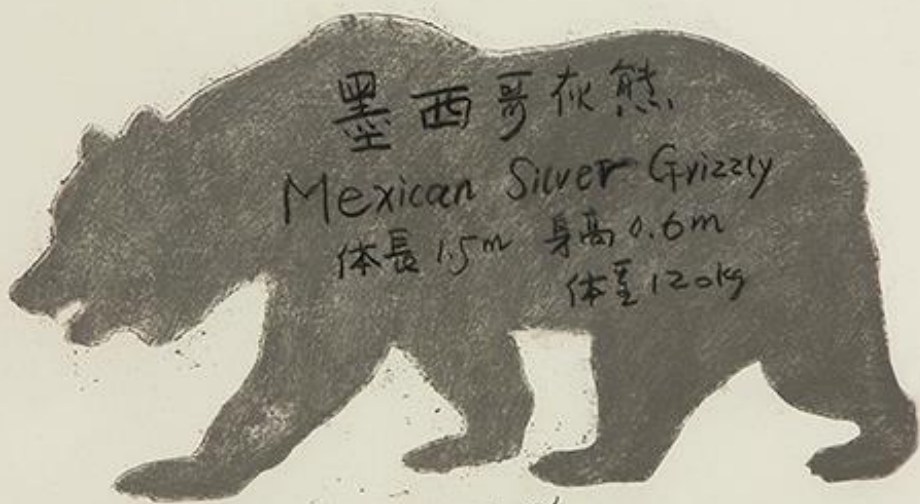 墨西哥灰熊
Mexican Silver Grizzly
体長 1.5m 身高 0.6m
体重 120kg